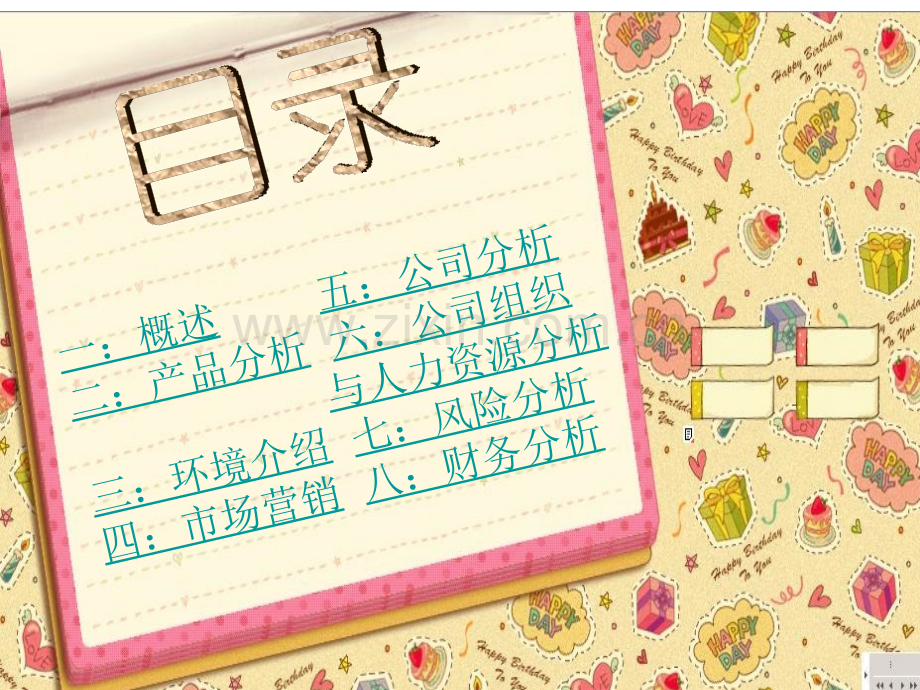 目录
一：概述
二：产品分析
三：环境介绍
四：市场营销
五：公司分析
六：公司组织
与人力资源分析
七：风险分析
八：财务分析
HAPPY DAY
Happy Birthday To You
LOVE
HAPPY DAY
Happy Birthday To You
HAPPY DAY
Happy Birthday To You
LOVE
HAPPY DAY
Happy Birthday To You
HAPPY DAY
HAPPY DAY
Happy Birthday
Happy Birthday